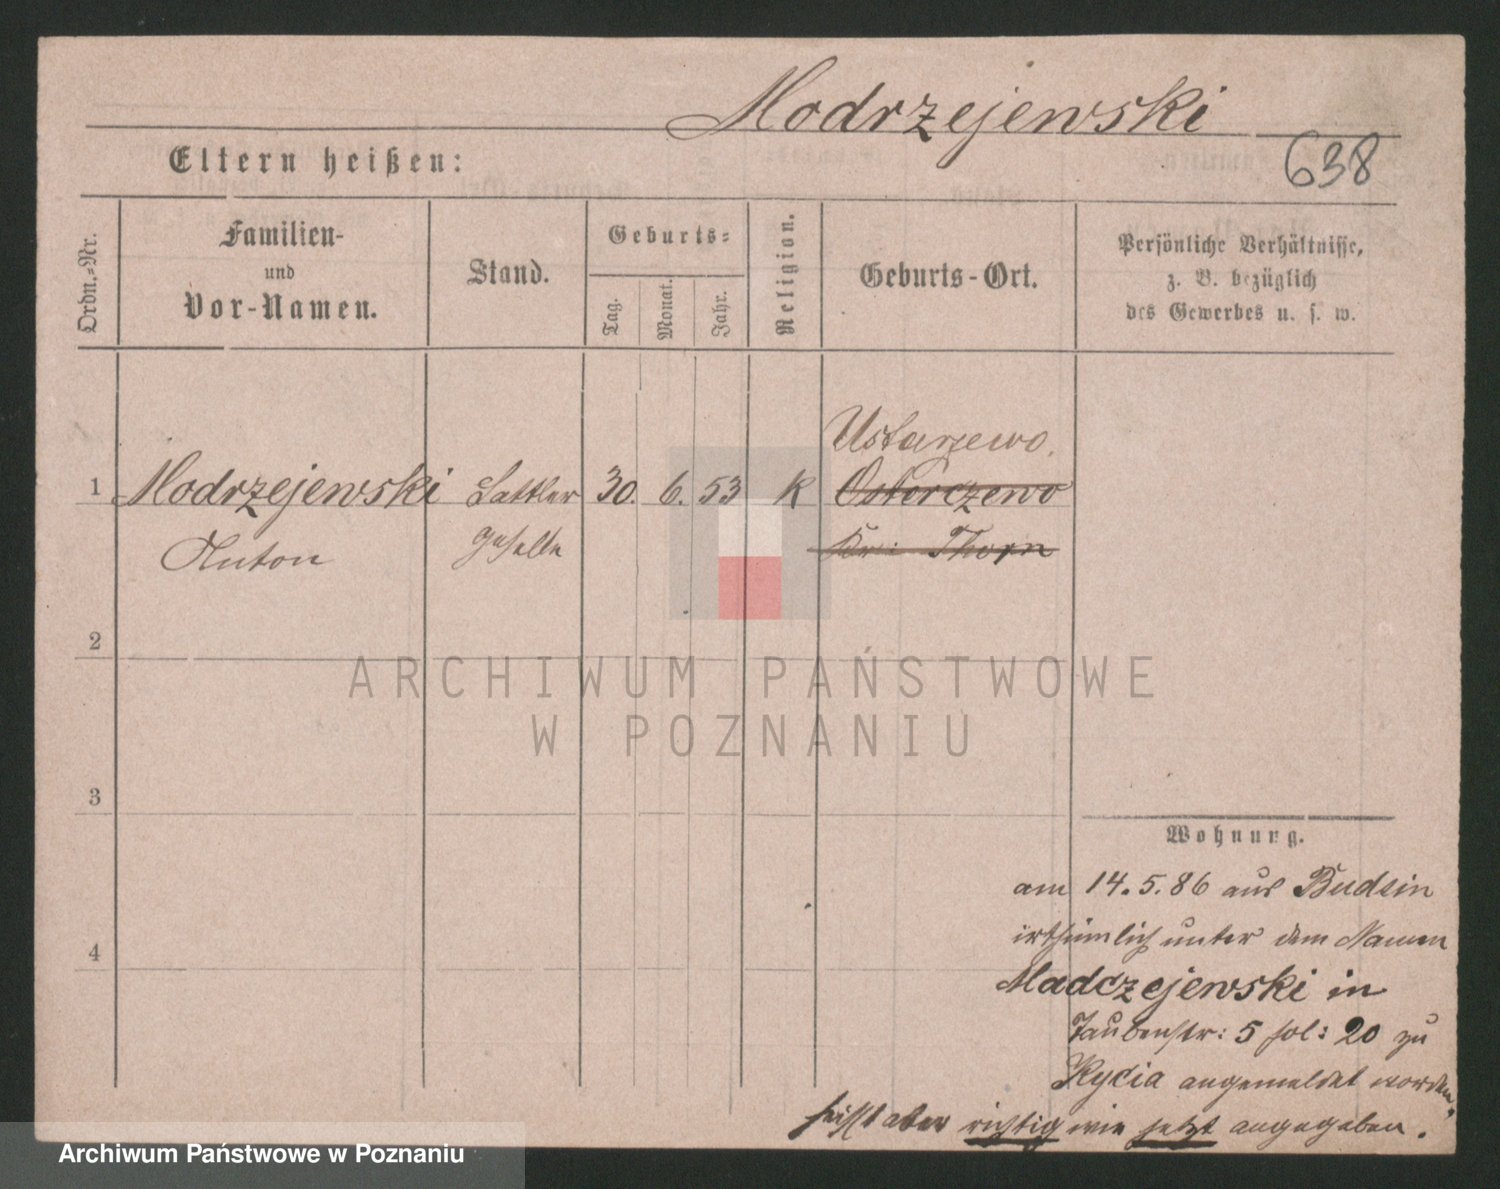 Modrzejewski
638
Eltern heißen:
Ordn.-Nr.
Familien-
und
Vor-Namen.
Stand.
Geburts-
Tag.
Monat.
Jahr.
Religion.
Geburts-Ort.
Persönliche Verhältnisse,
z. B. bezüglich
des Gewerbes u. s. w.
Ustarzewo.
1 Modrzejewski Sattler 30. 6. 53 K Ostorczewo
Anton geselle Kr: Thorn
2
3
4
Wohnung.
am 14.5.86 aus Budsin
irthümlich unter dem Namen
Madczejewski in
Taubenstr: 5 fol: 20 zu
Kycia angemeldet worden,
heißt aber richtig wie jetzt angegeben.
ARCHIWUM PAŃSTWOWE
W POZNANIU
Archiwum Państwowe w Poznaniu